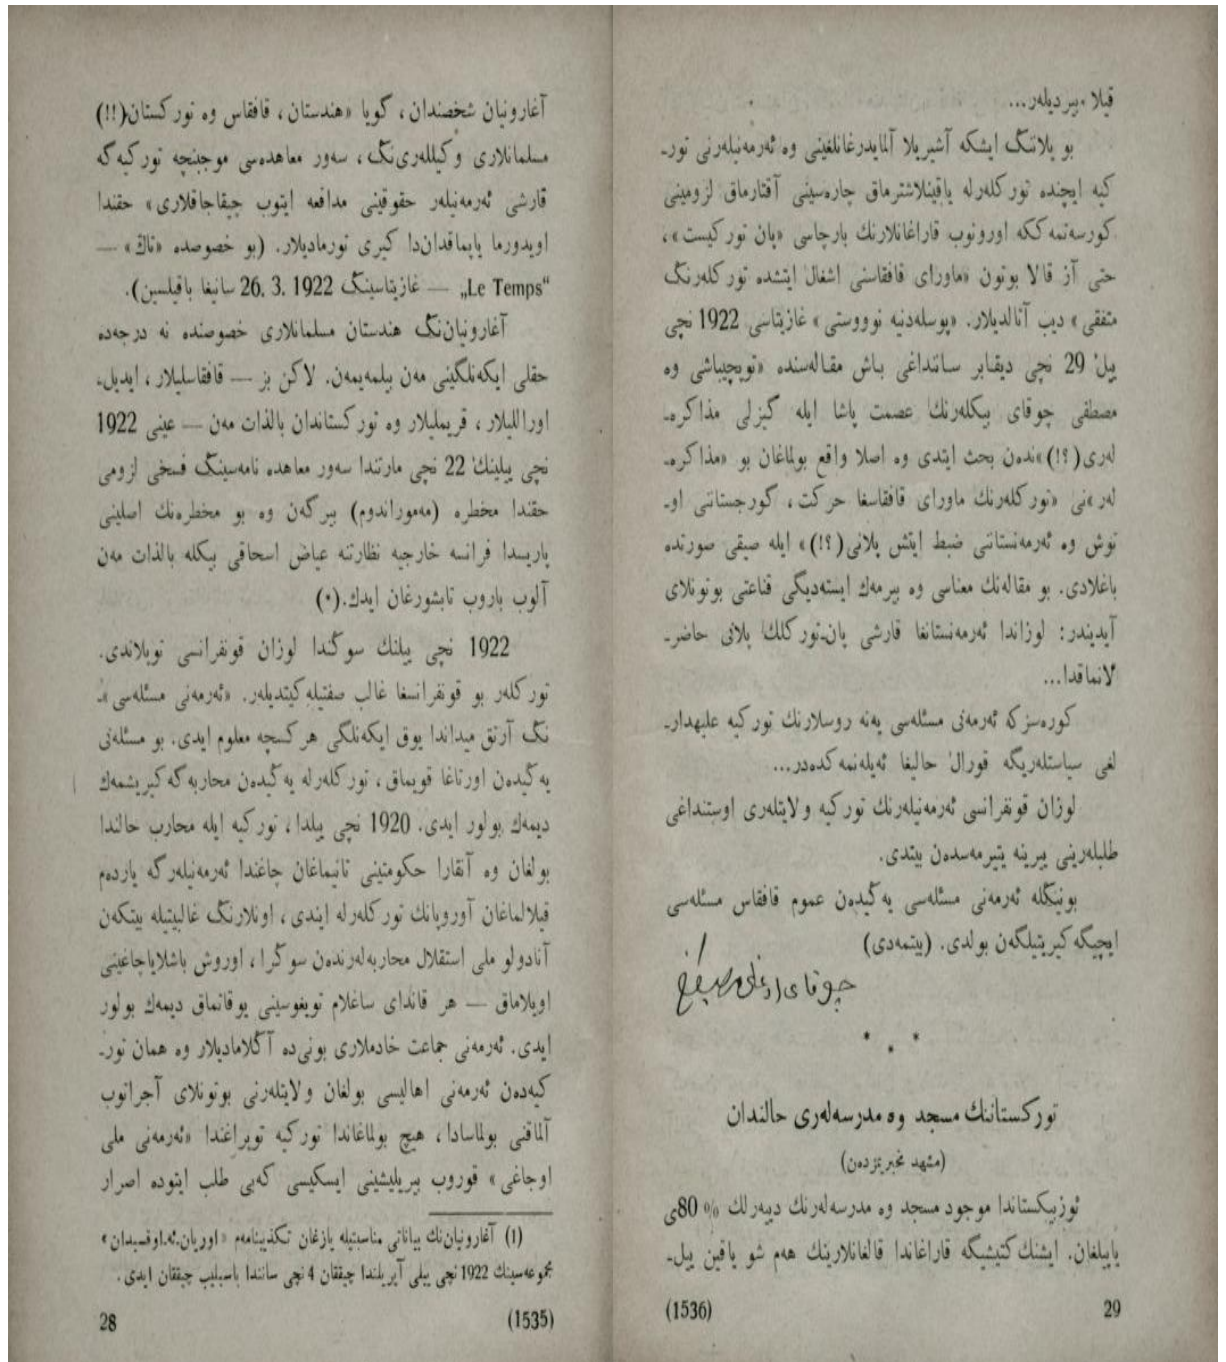 آغارونیان شخصندان، گویا «هندستان، قافقاس وه تورکستان(!!)
مسلمانلاری وکیللەری‌نگ، سەور معاهدەسی موجبنچه تورکیەگه
قارشی ئەرمەنیلەر حقوقینی مدافعه ایتوب چیقاجاقلاری» حقندا
اویدورما یاپماقدان‌دا کیری تورمادیلار. (بو خصوصده «تاڭ» —
“Le Temps„ — غازیتاسینگ 26. 3. 1922 سانیغا باقیلسین).
آغارونیان‌نگ هندستان مسلمانلاری خصوصنده نه درجەده
حقلی ایکەنلگینی مەن بیلمەیمەن. لاکن بز — قافقاسلیلار، ایدیل-
اوراللیلار، قریملیلار وه تورکستاندان بالذات مەن — عینی 1922
نچی ییلینڭ 22 نچی مارتندا سەور معاهده نامەسینگ فسخی لزومی
حقندا مخطره (مەموراندوم) بیرگەن وه بو مخطرەنڭ اصلینی
پاریسدا فرانسه خارجیه نظارتنه عیاض اسحاقی بیکله بالذات مەن
آلوب باروب تابشورغان ایدك.(۰)
1922 نچی ییلنڭ سوڭندا لوزان قونفرانسی توپلاندی.
تورکلەر بو قونفرانسغا غالب صفتیله کیتدیلەر. «ئەرمەنی مسئلەسی»-
نگ آرتق میداندا یوق ایکەنلگی هر کسچه معلوم ایدی. بو مسئلەنی
یەڭیدەن اورتاغا قویماق، تورکلەرله یەڭیدەن محاربەگه کیریشمەك
دیمەك بولور ایدی. 1920 نچی ییلدا، تورکیه ایله محارب حالندا
بولغان وه آنقارا حکومتینی تانیماغان چاغندا ئەرمەنیلەرگه یاردەم
قیلالماغان آوروپانڭ تورکلەرله ایندی، اونلارنگ غالبیتیله بیتکەن
آنادولو ملی استقلال محاربەلەرندەن سوڭرا، اوروش باشلایاجاغینی
اویلاماق — هر قاندای ساغلام تویغوسینی یوقاتماق دیمەك بولور
ایدی. ئەرمەنی جماعت خادملاری بونی‌ده آڭلامادیلار وه همان تور-
کیەدەن ئەرمەنی اهالیسی بولغان ولایتلەرنی بوتونلای آجراتوب
آلماقنی بولماسادا، هیچ بولماغاندا تورکیه توپراغندا «ئەرمەنی ملی
اوجاغی» قوروب بیریلیشینی ایسکیسی کەبی طلب ایتوده اصرار
(١) آغارونیان‌نڭ بیاناتی مناسبتیله یازغان تکذیبنامەم «اوریان.ئه.اوقسیدان»
مجموعەسینڭ 1922 نچی ییلی آپریلندا چیققان 4 نچی سانندا باسیلیب چیققان ایدی.
28
(1535)
قیلا بیردیلەر...
بو پلاننگ ایشکه آشیریلا آلمایدرغانلغینی وه ئەرمەنیلەرنی تور-
کیه ایچنده تورکلەرله یاقینلاشترماق چارەسینی آقتارماق لزومینی
کورسەتمەککه اورونوب قاراغانلارنڭ بارچاسی «پان تورکیست»،
حتی آز قالا بوتون «ماورای قافقاسنی اشغال ایتشده تورکلەرنگ
متفقی» دیب آتالدیلار. «پوسلەدنیه نوووستی» غازیتاسی 1922 نچی
ییلڭ 29 نچی دیقابر سانندا‌غی باش مقالەسنده «توپچیباشی وه
مصطفی چوقای بیکلەرنڭ عصمت پاشا ایله گیزلی مذاکره-
لەری(؟!)»ندەن بحث ایتدی وه اصلا واقع بولماغان بو «مذاکره-
لەر»نی «تورکلەرنڭ ماورای قافقاسغا حرکت، گورجستاننی او-
نوش وه ئەرمەنستاننی ضبط ایتش پلانی(؟!)» ایله صیقی صورتده
باغلادی. بو مقالەنڭ معناسی وه بیرمەك ایستەدیگی قناعتی بوتونلای
آیدیندر: لوزاندا ئەرمەنستانغا قارشی پان-تورکلك پلانی حاضر-
لانماقدا...
کورەسزکه ئەرمەنی مسئلەسی یەنه روسلارنڭ تورکیه علیهدار-
لغی سیاستلەریگه قورال حالیغا ئەیلەنمەکدەدر...
لوزان قونفرانسی ئەرمەنیلەرنڭ تورکیه ولایتلەری اوستنداغی
طلبلەرینی یرینه یتیرمەسدەن بیتدی.
بونیکله ئەرمەنی مسئلەسی یەڭیدەن عموم قافقاس مسئلەسی
ایچیگه کیریتیلگەن بولدی. (بیتمەدی)
چوقای اوغلی مصطفی
* * *
تورکستاننڭ مسجد وه مدرسەلەری حالندان
(مشهد مخبریمزدەن)
ئوزبیکستاندا موجود مسجد وه مدرسەلەرنڭ دییەرلك %80ی
یاپیلغان. ایشنڭ کتیشیگه قاراغاندا قالغانلارینڭ هەم شو یاقین ییل-
(1536)
29